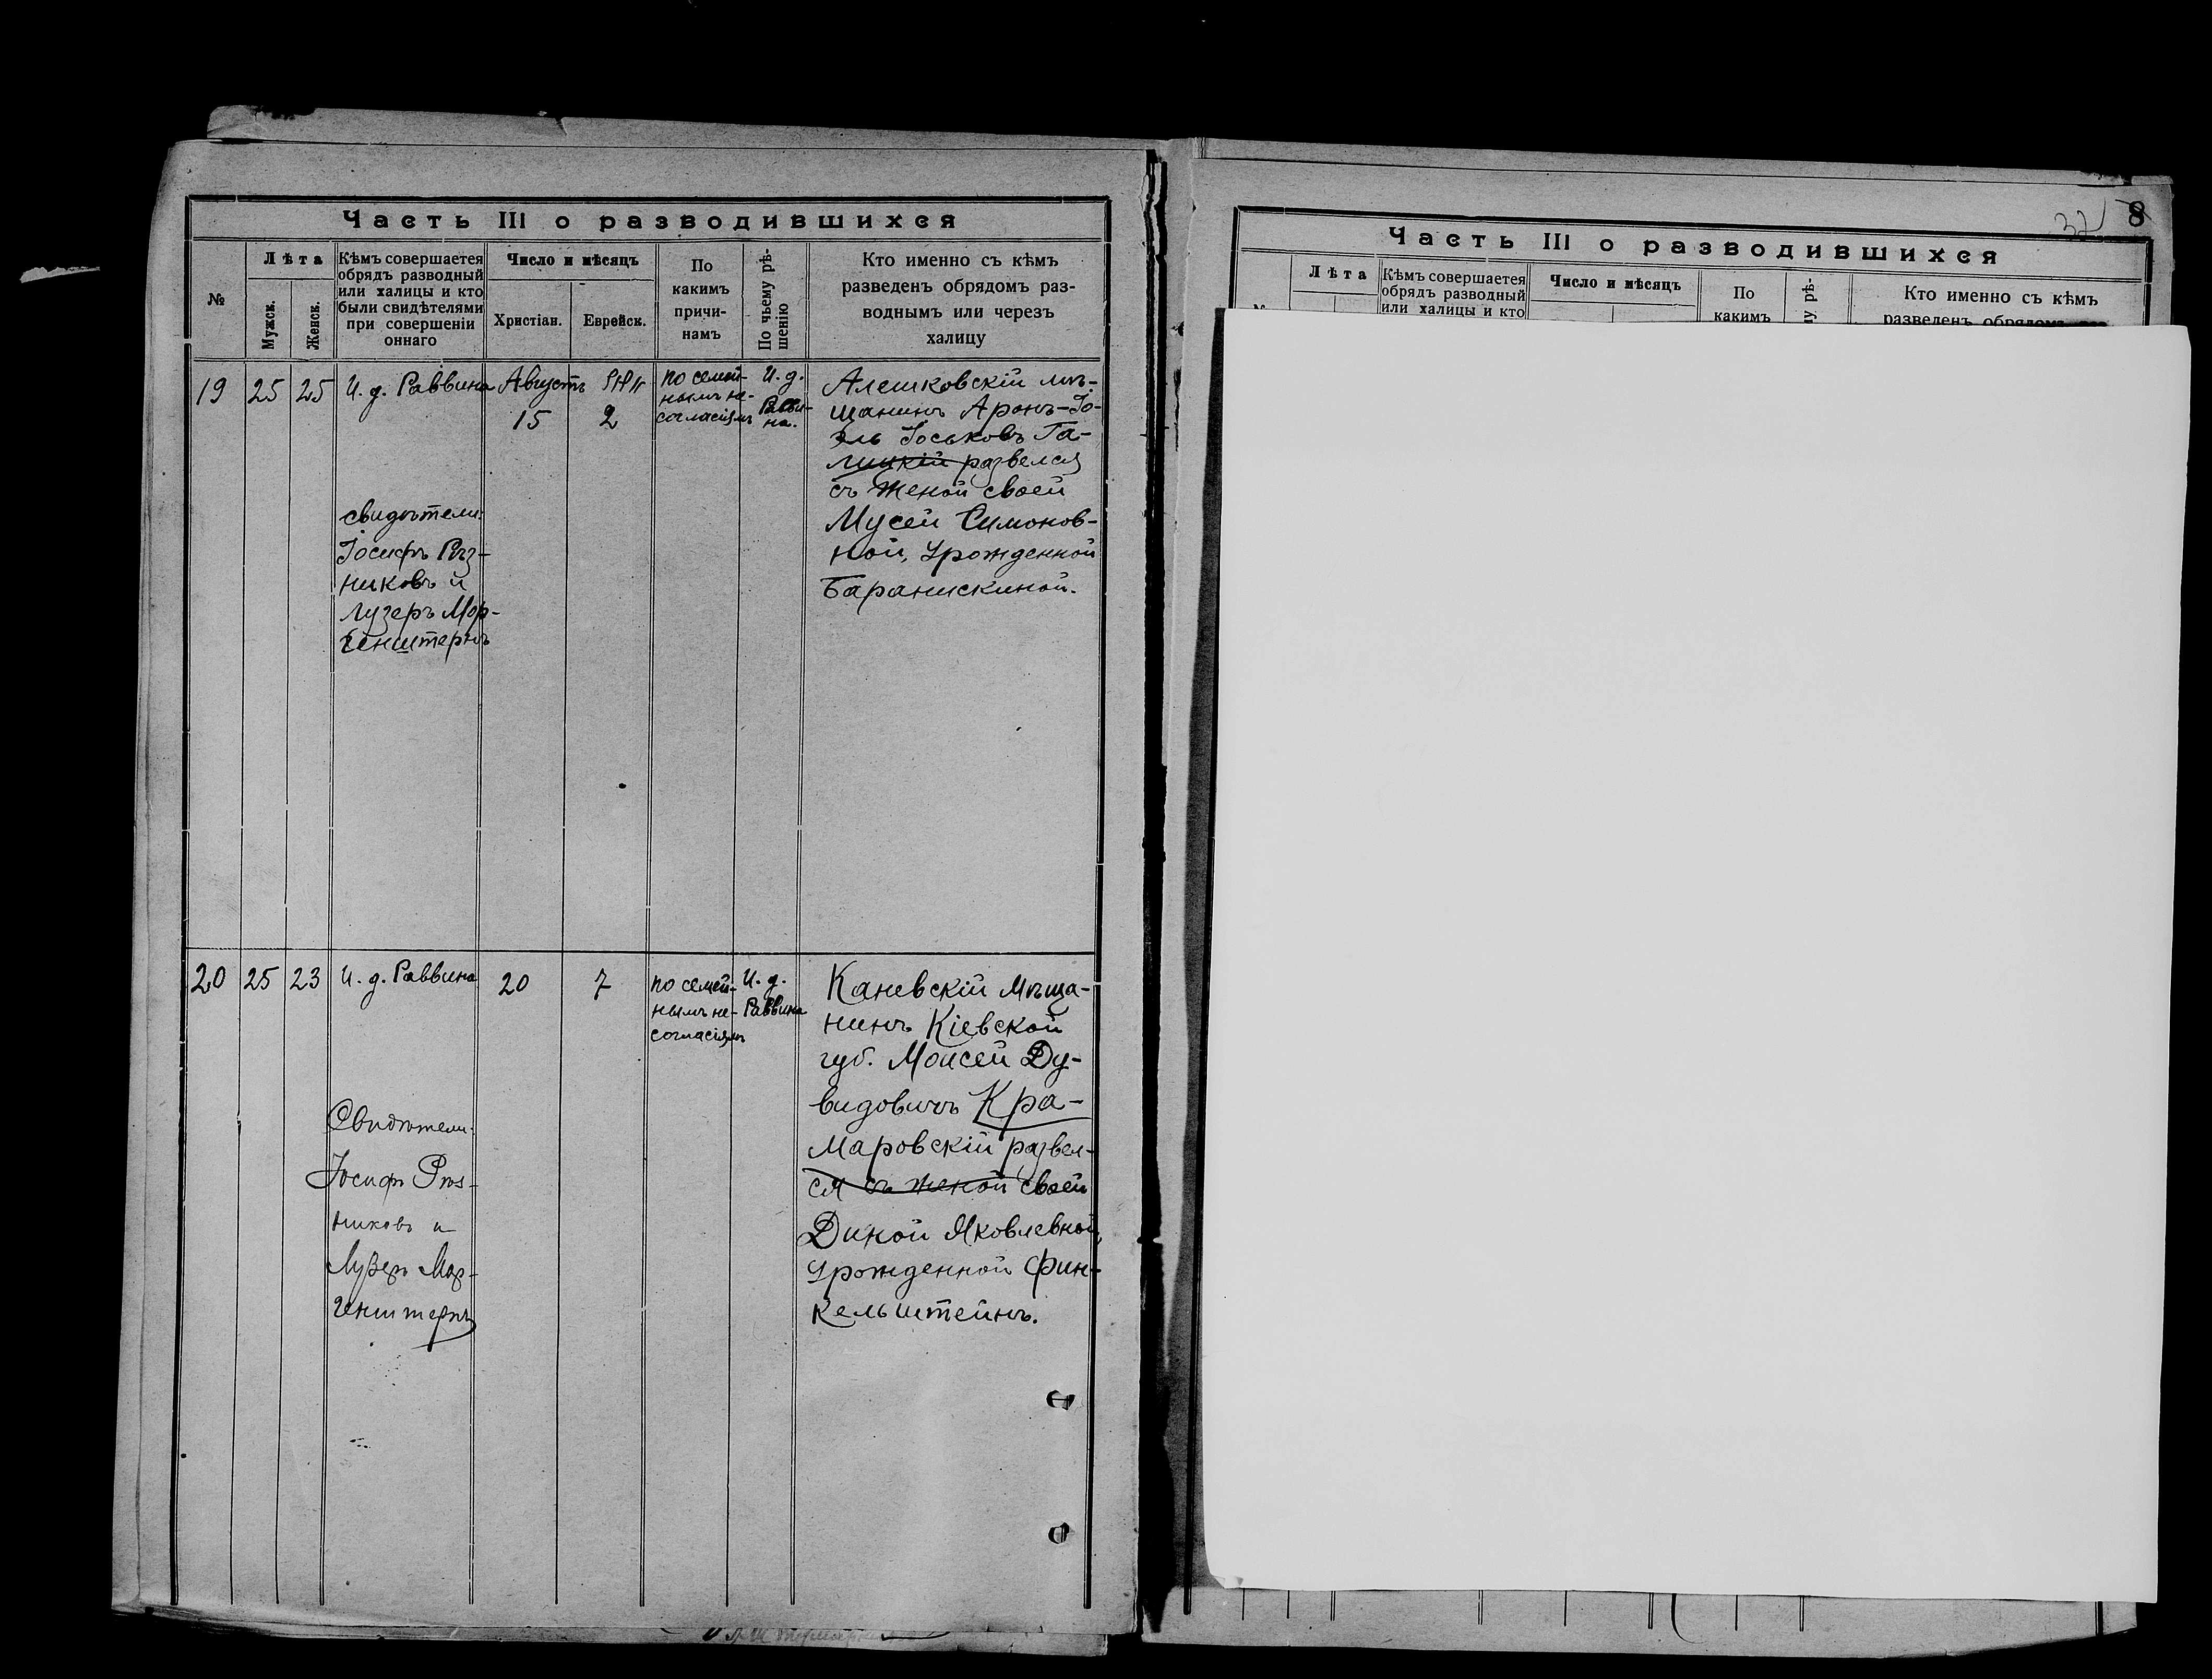 Часть III о разводившихся
№
Лѣта
Мужск.
Женск.
Кѣмъ совершается
обрядъ разводный
или халицы и кто
были свидѣтелями
при совершеніи
оннаго
Число и мѣсяцъ
Христіан.
Еврейск.
По
какимъ
причи-
намъ
По чьему рѣ-
шенію
Кто именно съ кѣмъ
разведенъ обрядомъ раз-
воднымъ или черезъ
халицу
19
25
25
И. д. Раввина
свидѣтели:
Іосифъ Рѣз-
никовъ и
Лузеръ Мор-
генштернъ
Августъ
15
2
по семей-
нымъ не-
согласіямъ
И. д.
Равви-
на.
Алешковскій мѣ-
щанинъ Аронъ-Іо-
эль Іоськовъ Га-
лицкій развелся
съ женой своей
Мусей Симонов-
ной, урожденной
Баранискиной.
20
25
23
И. д. Раввина
Свидѣтели:
Іосифъ Рѣз-
никовъ и
Лузеръ Мор-
генштернъ
20
7
по семей-
нымъ не-
согласіямъ
И. д.
Раввина
Каневскій мѣща-
нинъ Кіевской
губ. Моисей Ду-
видовичъ Кра-
маровскій развел-
ся съ женой своей
Диной Яковлевной,
урожденной Фин-
кельштейнъ.
37
8
Часть III о разводившихся
Лѣта
Кѣмъ совершается
обрядъ разводный
или халицы и кто
Число и мѣсяцъ
По
какимъ
му рѣ-
Кто именно съ кѣмъ
разведенъ обрядомъ